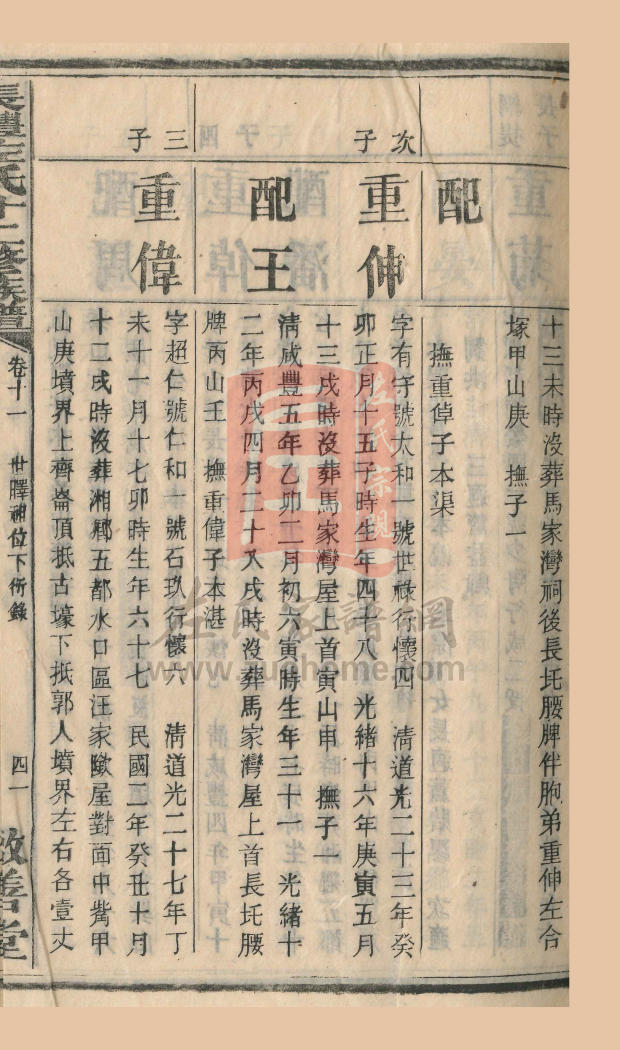 十三未時沒葬馬家灣祠後長圫腰牌伴胞弟重伸左合
塚甲山庚　撫子一
配
撫重倬子本渠
次子
重伸
字有守號太和一號世祿行懷四　清道光二十三年癸
卯正月十五子時生年四十八　光緒十六年庚寅五月
十三戌時沒葬馬家灣屋上首寅山申　撫子一
配王
清咸豐五年乙卯二月初六寅時生年三十一　光緒十
二年丙戌四月二十八戌時沒葬馬家灣屋上首長圫腰
牌丙山壬　撫重偉子本湛
三子
重偉
字超仁號仁和一號石玖行懷六　清道光二十七年丁
未十一月十七卯時生年六十七　民國二年癸丑十月
十二戌時沒葬湘鄉五都水口區汪家墩屋對面中嘴甲
山庚墳界上齊崙頂抵古壕下抵郭人墳界左右各壹丈
長澧左氏十二修族譜
卷十一　世驛神位下衍錄
四一
敬善堂
左氏宗親
左氏家譜網
www.zuohome.com